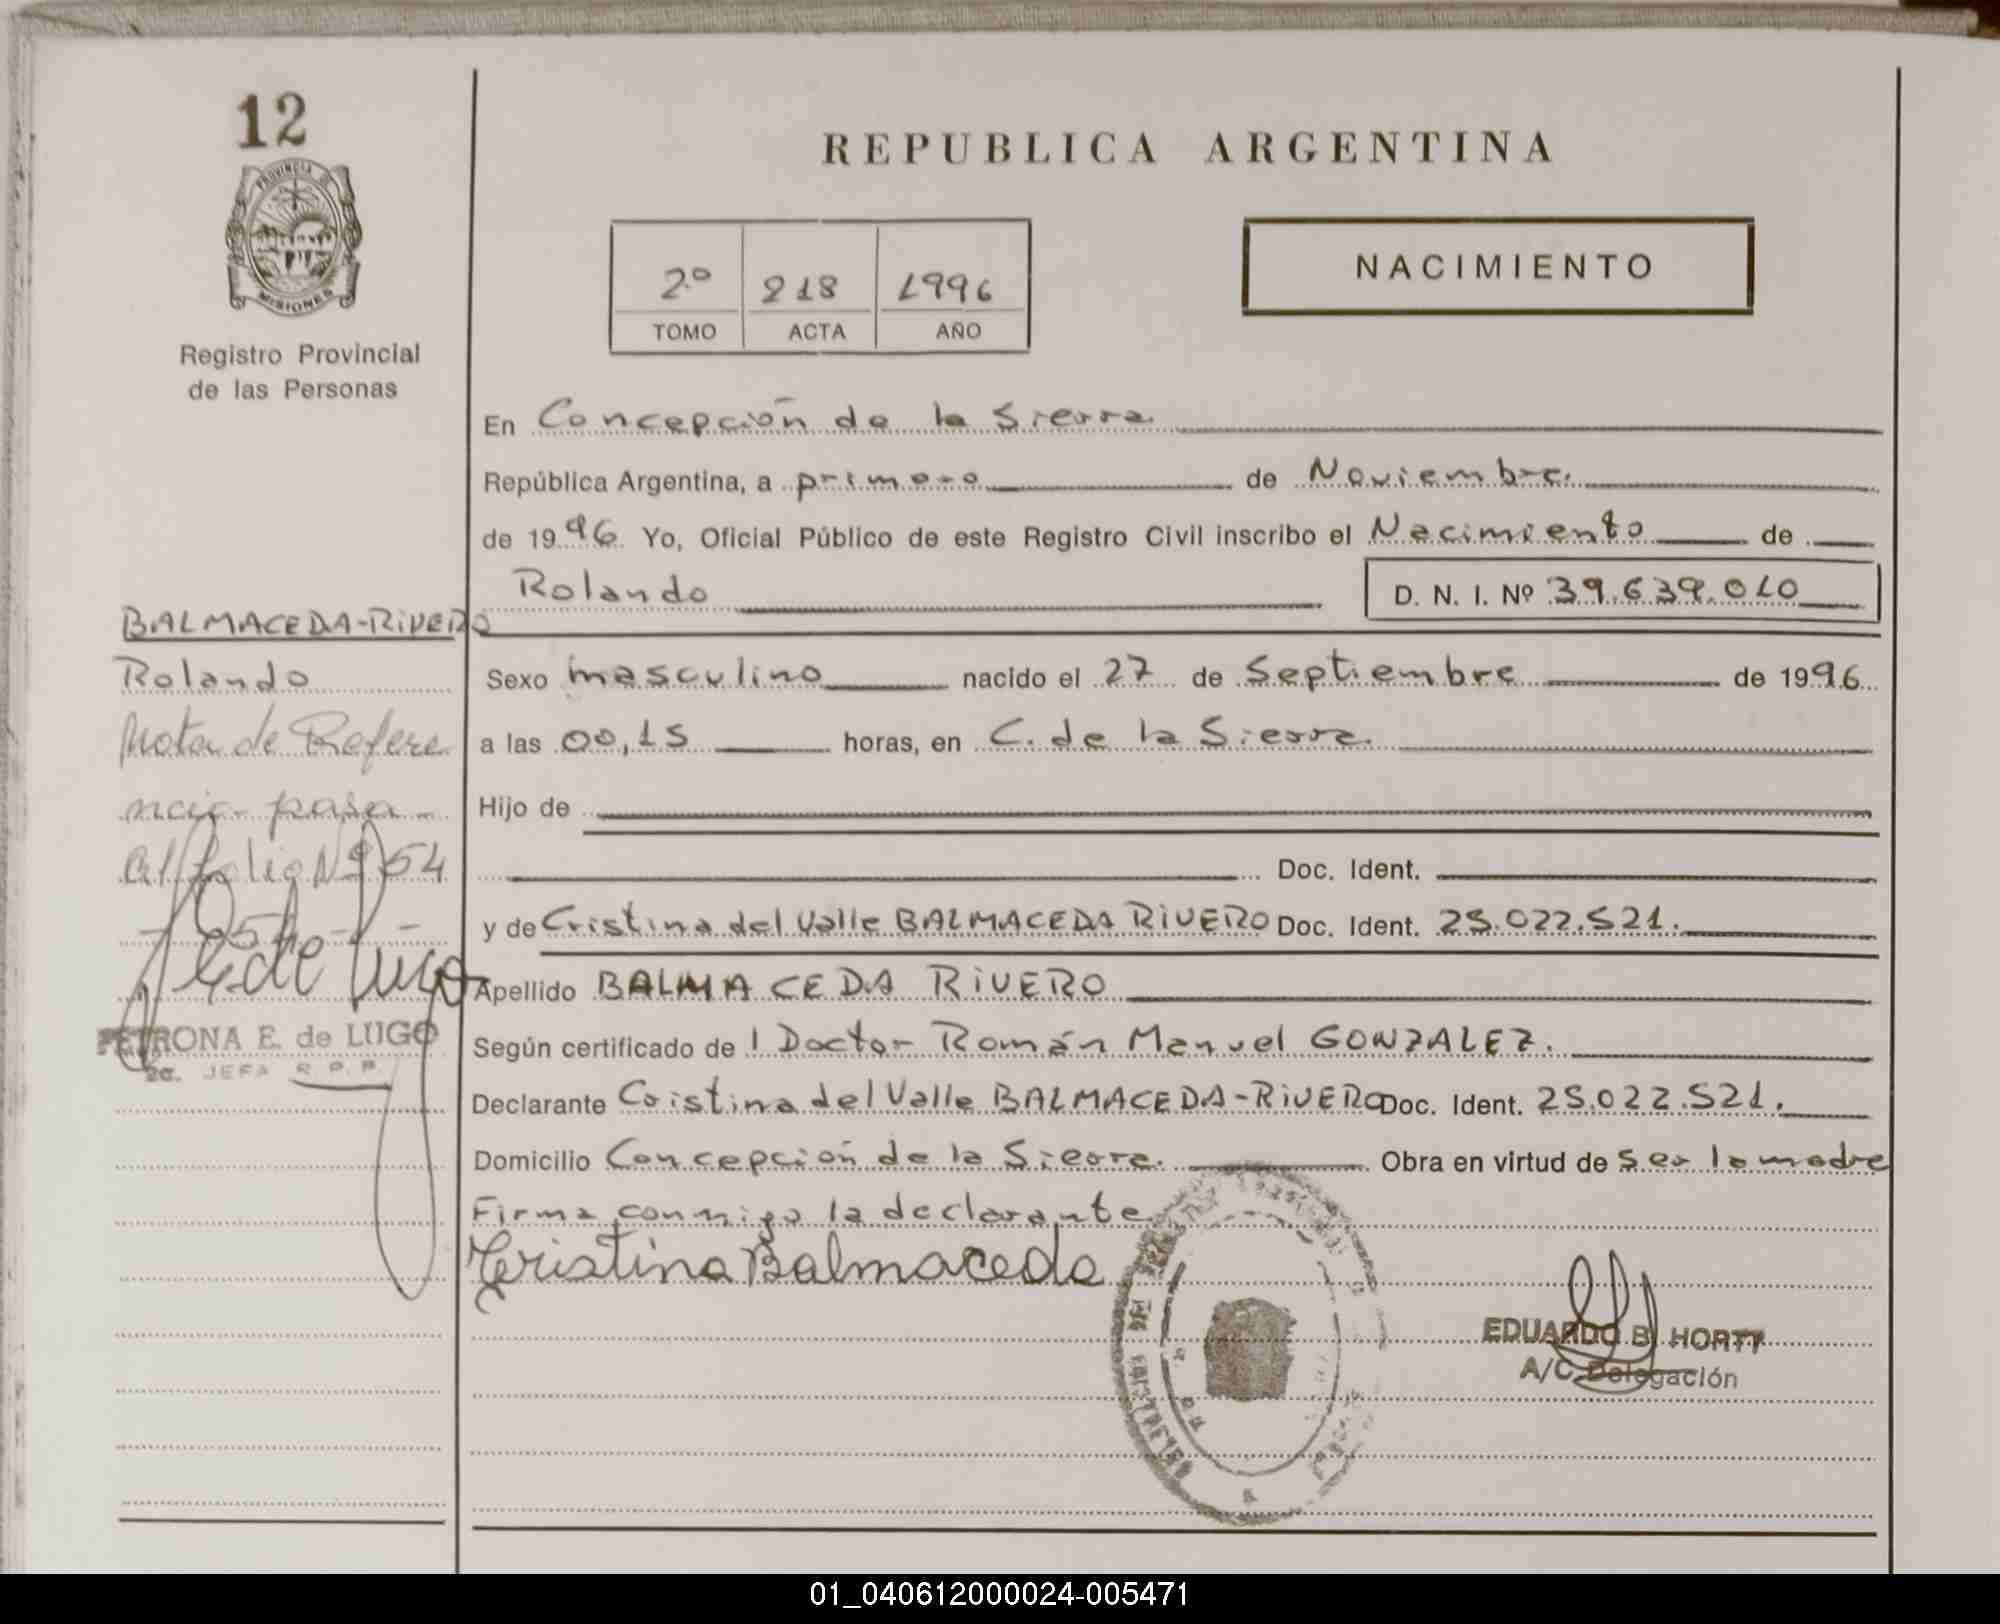 12
PROVINCIA DE
MISIONES
Registro Provincial
de las Personas
REPUBLICA ARGENTINA
2º 218 1996
TOMO ACTA AÑO
NACIMIENTO
En Concepción de la Sierra
República Argentina, a primero de Noviembre.
de 1996 Yo, Oficial Público de este Registro Civil inscribo el Nacimiento de
Rolando D. N. I. Nº 39.639.010
Sexo masculino nacido el 27 de Septiembre de 1996
a las 00,15 horas, en C. de la Sierra.
Hijo de
Doc. Ident.
y de Cristina del Valle BALMACEDA RIVERO Doc. Ident. 25.022.521.
Apellido BALMACEDA RIVERO
Según certificado de l Doctor Román Manuel GONZALEZ.
Declarante Cristina del Valle BALMACEDA-RIVERO Doc. Ident. 25.022.521.
Domicilio Concepción de la Sierra. Obra en virtud de ser la madre
Firma conmigo la declarante
Cristina Balmaceda
EDUARDO B. HORTT
A/C Delegación
BALMACEDA-RIVERO
Rolando
Nota de Refere
ncia pasa
al folio Nº 54
PETRONA E. de LUGO
2a. JEFA R.P.P.
01_040612000024-005471